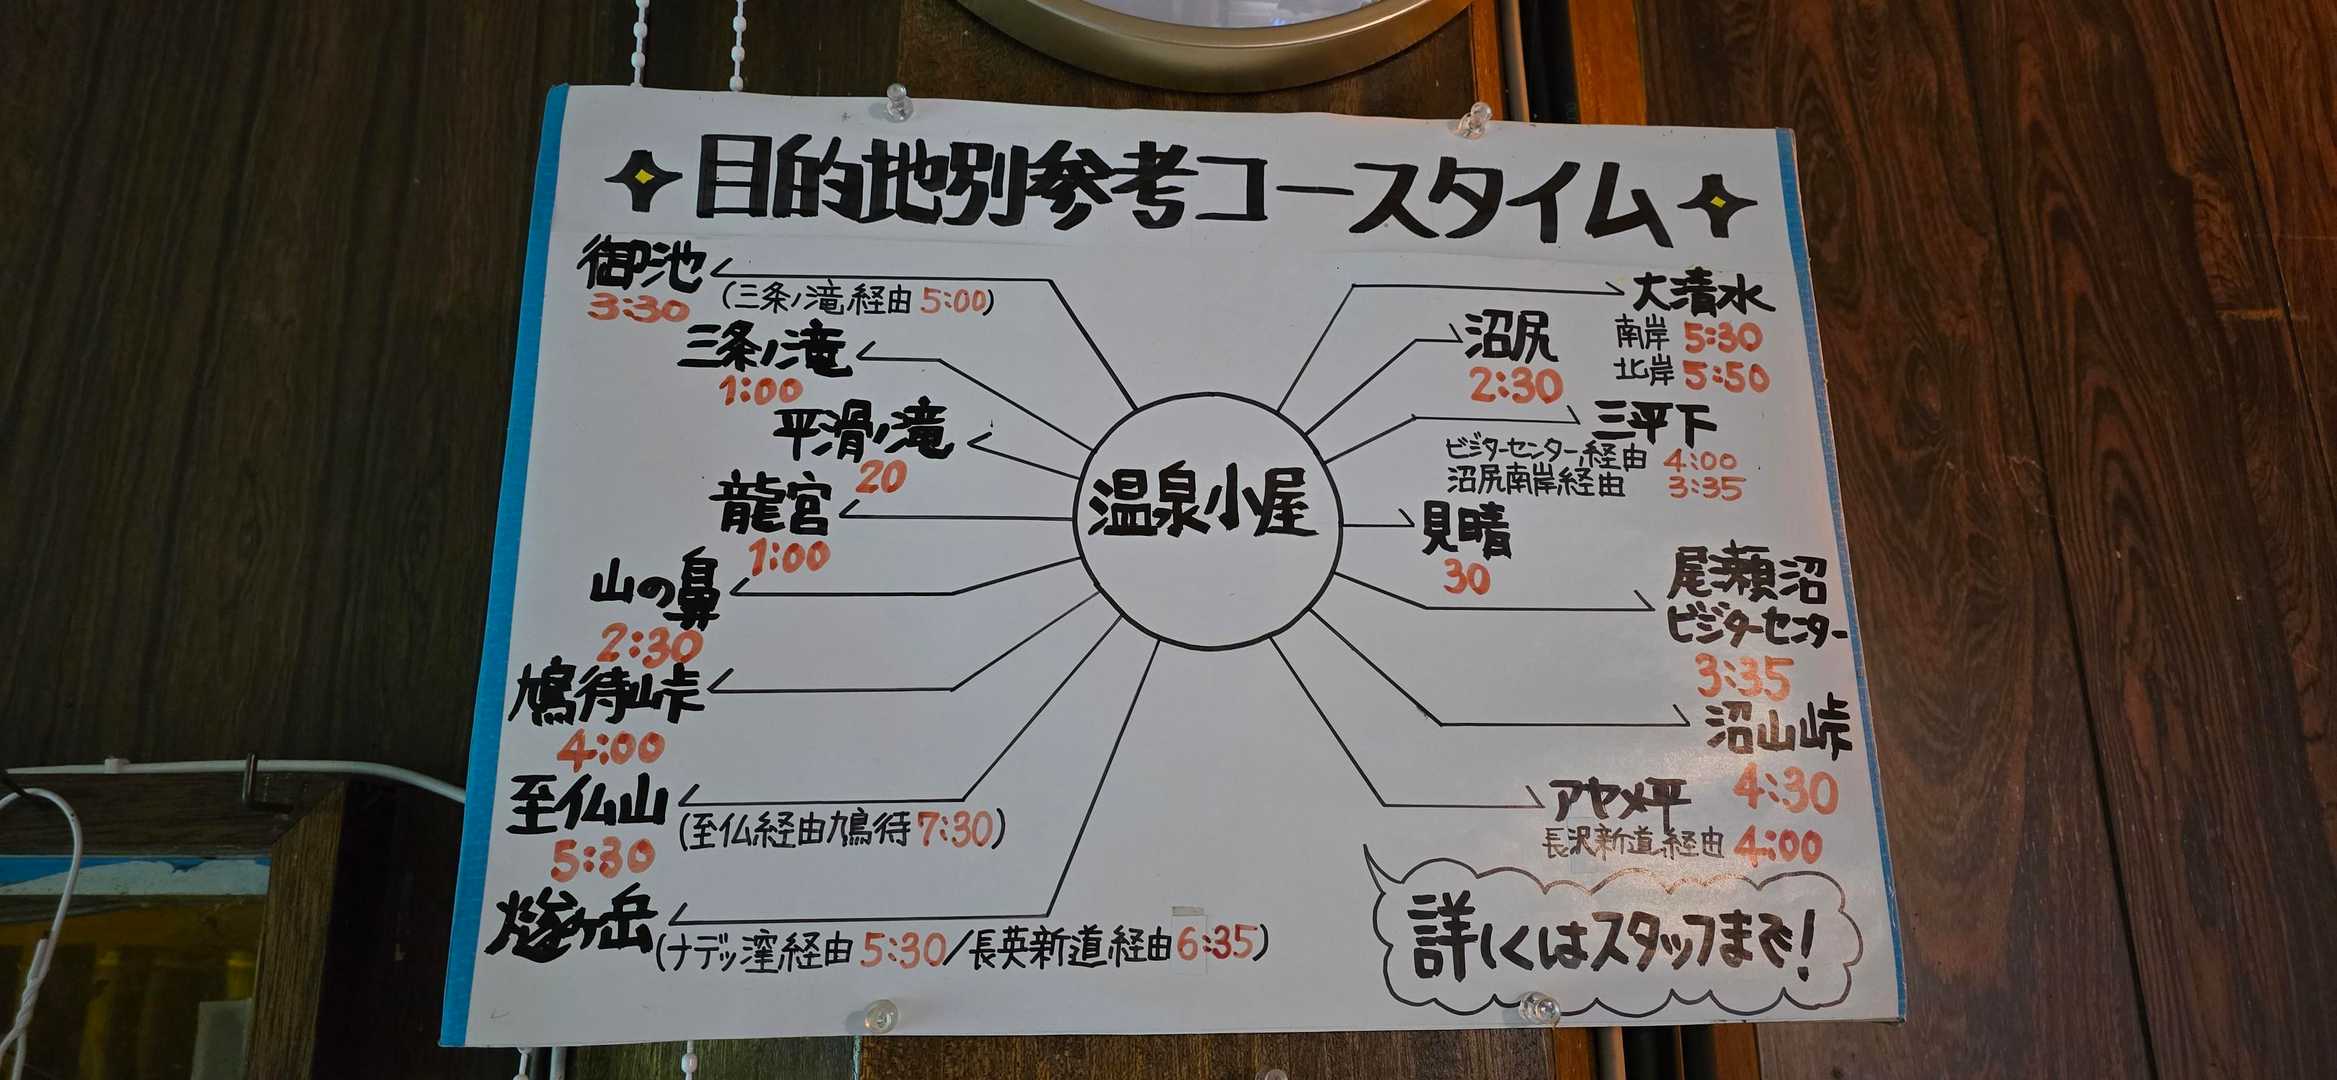 目的地別参考コースタイム
御池
3:30
(三条ノ滝経由 5:00)
三条ノ滝
1:00
平滑ノ滝
20
龍宮
1:00
山の鼻
2:30
鳩待峠
4:00
至仏山
5:30
(至仏経由鳩待 7:30)
燧ヶ岳
(ナデッ窪経由 5:30/長英新道経由 6:35)
温泉小屋
大清水
南岸 5:30
北岸 5:50
沼尻
2:30
三平下
ビジターセンター経由 4:00
沼尻南岸経由 3:35
見晴
30
尾瀬沼
ビジターセンター
3:35
沼山峠
4:30
アヤメ平
長沢新道経由 4:00
詳しくはスタッフまで!